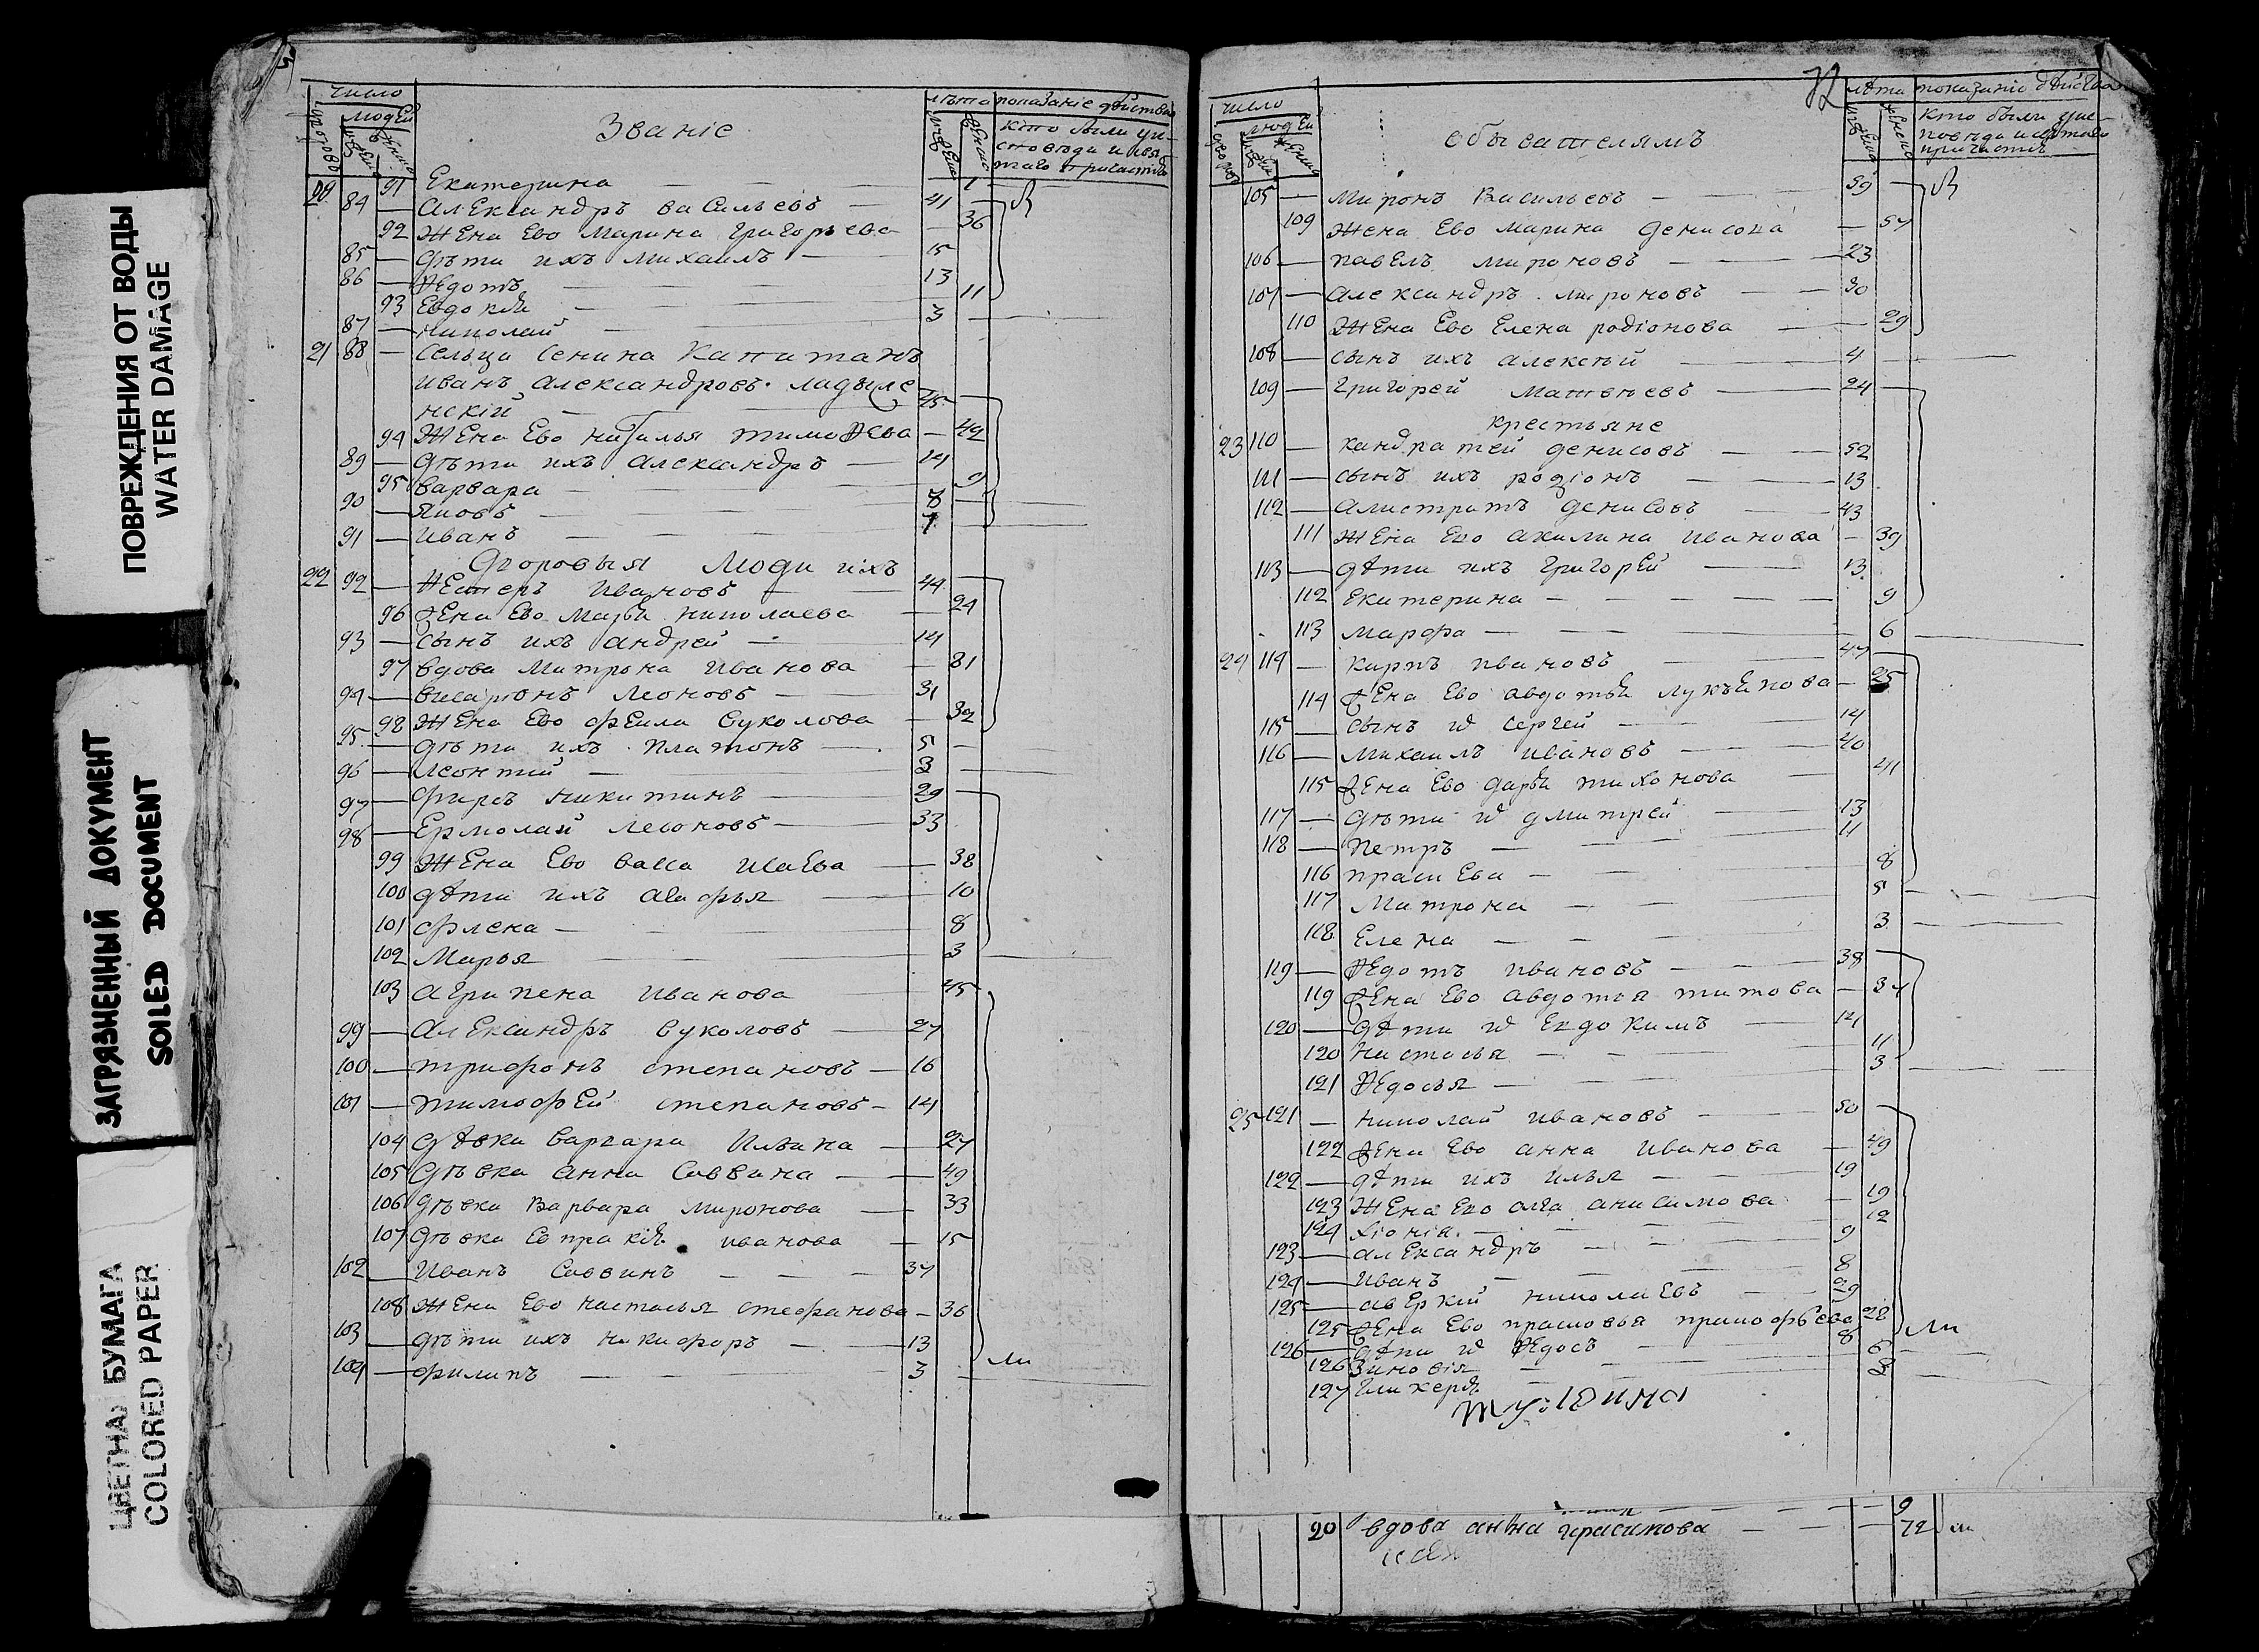 ПОВРЕЖДЕНИЯ ОТ ВОДЫ
WATER DAMAGE
ЗАГРЯЗНЕННЫЙ ДОКУМЕНТ
SOILED DOCUMENT
ЦВЕТНАЯ БУМАГА
COLORED PAPER
число
людей
Званіе
лѣта показаніе действа
кто были у ис-
повѣди и свя-
таго причастія
91 Екатерина 1
20 84 Александръ Васильевъ 41
92 Жена Ево Марина Григорьева 36
85 дѣти ихъ Михаилъ 15
86 Ѳедотъ 13
93 Евдокія 11
87 Николай 3
21 88 Сельца Сенина Капитанъ
Иванъ Александровъ Ладыже
нскій 45
94 Жена Ево Наталья Тимоѳеева 42
89 дѣти ихъ Александръ 14
95 Варвара 9
90 Яковъ 8
91 Иванъ 7
Дворовыя Люди ихъ
22 92 Нестеръ Ивановъ 44
96 Жена Ево Марья Николаева 24
93 Сынъ ихъ Андрей 14
97 вдова Матрона Иванова 81
94 Висаріонъ Леоновъ 31
98 Жена Ево Фекла Вуколова 32
95 дѣти ихъ Платонъ 5
96 Леонтий 3
97 Фирсъ Никитинъ 29
98 Ермолай Левоновъ 33
99 Жена Ево Васса Исаева 38
100 дѣти ихъ Агафья 10
101 Флена 8
102 Марья 3
103 Агрипена Иванова 45
99 Александръ Вуколовъ 27
100 Трифонъ Степановъ 16
101 Тимофей Степановъ 14
104 дѣвка Варвара Ильина 27
105 дѣвка Анна Саввина 49
106 дѣвка Варвара Миронова 33
107 дѣвка Евпракія Иванова 15
102 Иванъ Саввинъ 37
108 Жена Ево Настасья Стефанова 36
103 дѣти ихъ Никифоръ 13
104 Филипъ 3
72
число
людей
обывателямъ
лѣта показаніе дѣйства
Кто были у ис-
повѣди и святаго
причастія
105 Миронъ Васильевъ 59
109 Жена Ево Марина Денисова 57
106 Павелъ Мироновъ 23
107 Александръ Мироновъ 30
110 Жена Ево Елена Родіонова 29
108 сынъ ихъ Алексѣй 4
109 Григорей Матвѣевъ 24
крестьяне
23 110 Кандратей Денисовъ 52
111 сынъ ихъ Родіонъ 13
112 Алистратъ Денисовъ 43
111 Жена Ево Акилина Иванова 39
113 дѣти ихъ Григорей 13
112 Екатерина 9
113 Марфа 6
24 114 Карпъ Ивановъ 47
114 Жена Ево Авдотья Лукъянова 25
115 сынъ Сергей 14
116 Михаилъ Ивановъ 40
115 Жена Ево Дарья Тихонова 41
117 дѣти Дмитрей 13
118 Петръ 11
116 Праскева 8
117 Матрона 5
118 Елена 3
119 Ѳедотъ Ивановъ 38
119 Жена Ево Авдотья Титова 37
120 дѣти Евдокимъ 14
120 Настасья 11
121 Ѳедосья 3
25 121 Николай Ивановъ 50
122 Жена Ево Анна Иванова 49
122 дѣти ихъ Илья 19
123 Жена Ево Олга Анисимова 19
124 Хіонія 12
123 Александръ 9
124 Иванъ 8
125 Аверкій Николаевъ 29
125 Жена Ево Прасковья 28
126 дѣти Ѳедосъ 8
126 Зиновія 6
127 Гликерья 3
20 вдова Анна Герасимова 72